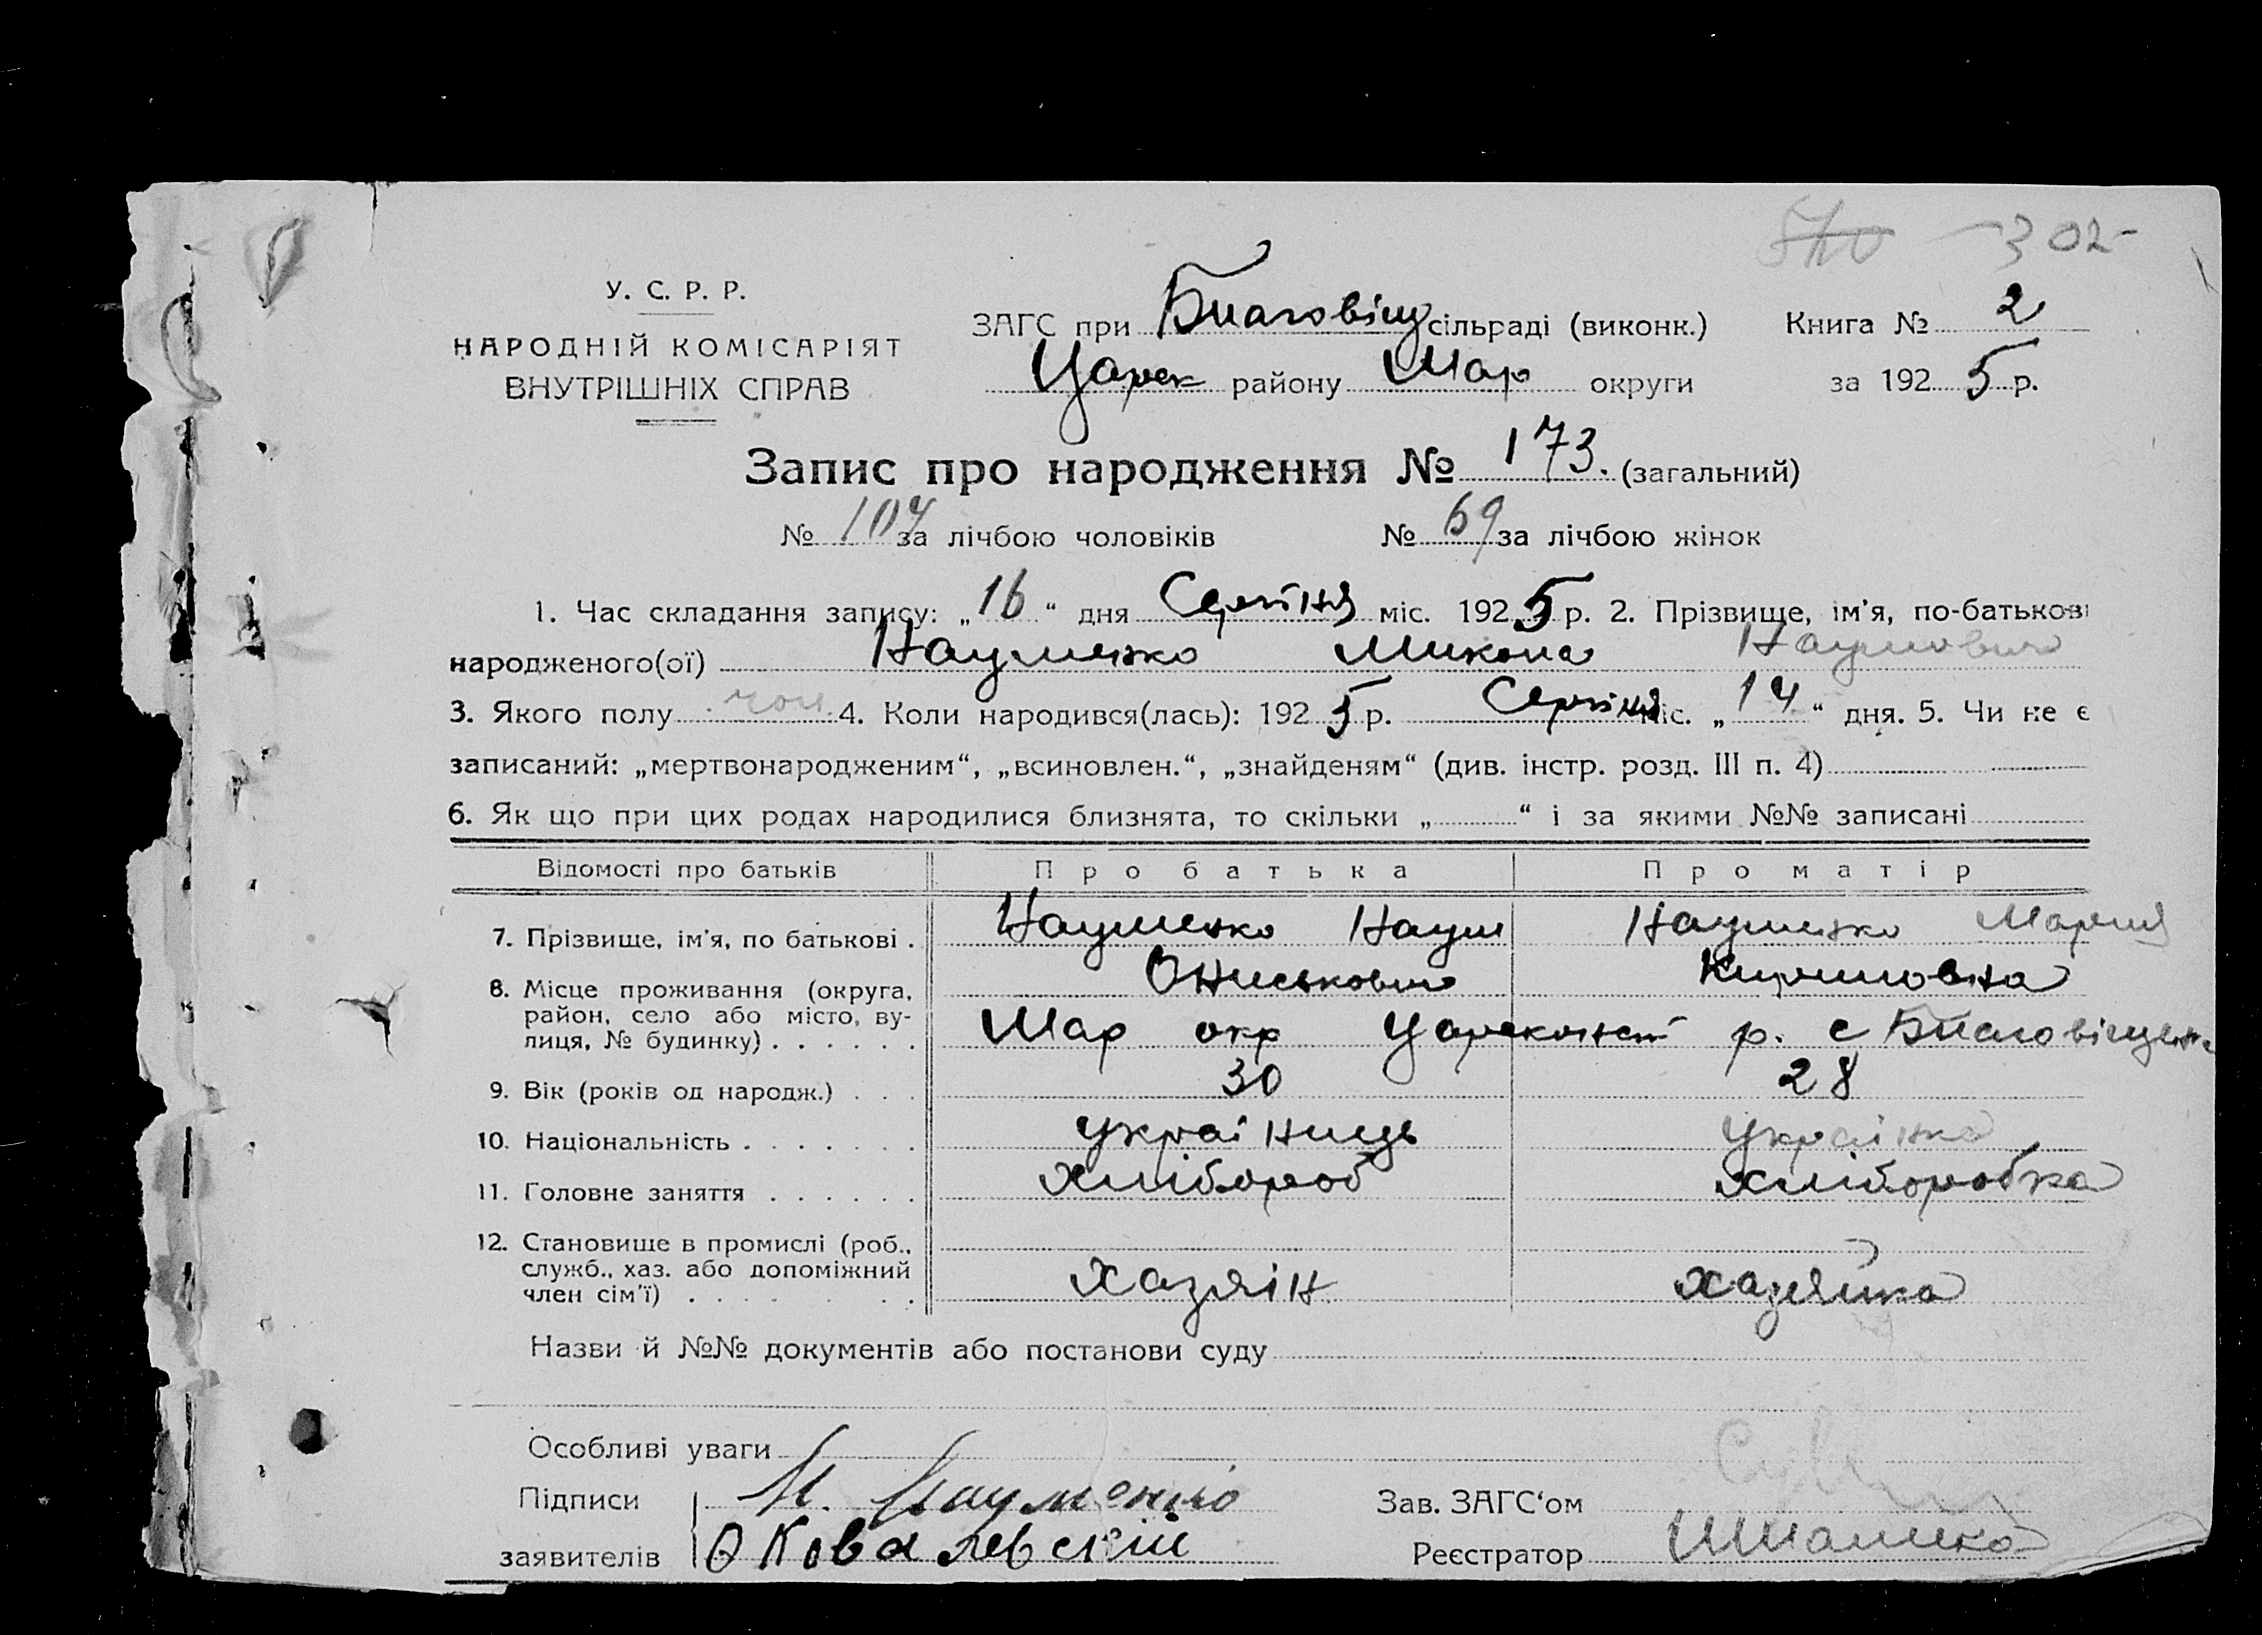 302
У. С. Р. Р.
НАРОДНІЙ КОМІСАРІЯТ
ВНУТРІШНІХ СПРАВ
ЗАГС при Благовіщ сільраді (виконк.) Книга № 2
Царек району Мар округи за 1925 р.
Запис про народження № 173. (загальний)
№ 104 за лічбою чоловіків № 69 за лічбою жінок
1. Час складання запису: „16“ дня Серпня міс. 1925 р. 2. Прізвище, ім'я, по-батькові
народженого(ої) Науменко Микола Наумович
3. Якого полу чол. 4. Коли народився(лась): 1925 р. Серпня міс. „14“ дня. 5. Чи не є
записаний: „мертвонародженим“, „всиновлен.“, „знайденям“ (див. інстр. розд. III п. 4)
6. Як що при цих родах народилися близнята, то скільки „ “ і за якими №№ записані
Відомості про батьків Про батька Про матір
7. Прізвище, ім'я, по батькові . Науменко Наум Науменко Мария
Ониськович Кириловна
8. Місце проживання (округа, район, село або місто, вулиця, № будинку) . . . . . . Мар окр р. с Благовіщен
9. Вік (років од народж.) . . . 30 28
10. Національність . . . . . . . Україниць Українка
11. Головне заняття . . . . . . Хлібороб Хліборобка
12. Становище в промислі (роб., служб., хаз. або допоміжний член сім'ї) . . . . . . . Хазяін Хазяйка
Назви й №№ документів або постанови суду
Особливі уваги
Підписи Н. Науменко Зав. ЗАГС'ом
заявителів О Ковалевский Реєстратор